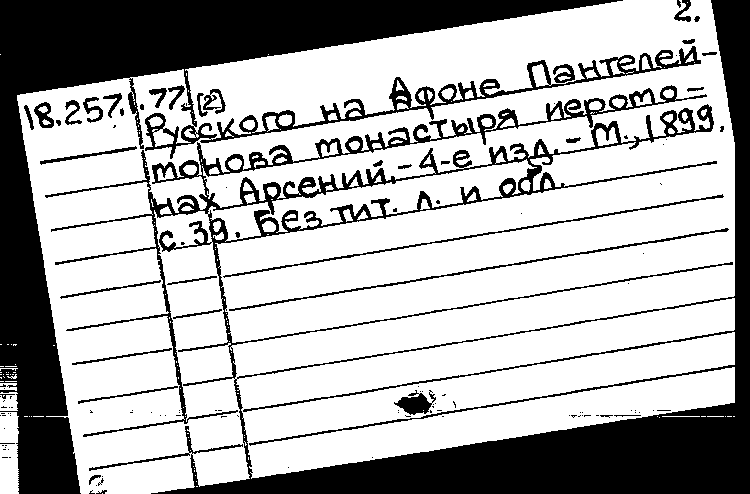 2.
18.257.1.77. [2]
Русского на Афоне Пантелей-
монова монастыря иеромо-
нах Арсений.-4-е изд.-М.,1899.
с.39. Без тит. л. и обл.
2